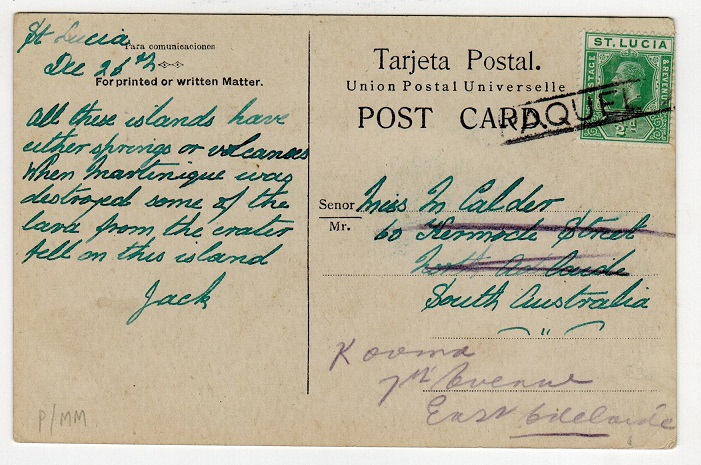 St Lucia
Para comunicaciones
Dec 26th
For printed or written Matter.
All these islands have
either springs or volcanoes
When Martinique was
destroyed some of the
lava from the crater
fell on this island
Jack
Tarjeta Postal.
Union Postal Universelle
POST CARD.
ST. LUCIA
POSTAGE
& REVENUE
PAQUET
Senor
Mr.
Miss M Calder
60 Kermode Street
North Adelaide
South Australia
"
Kooma
7th Avenue
East Adelaide
P/MM